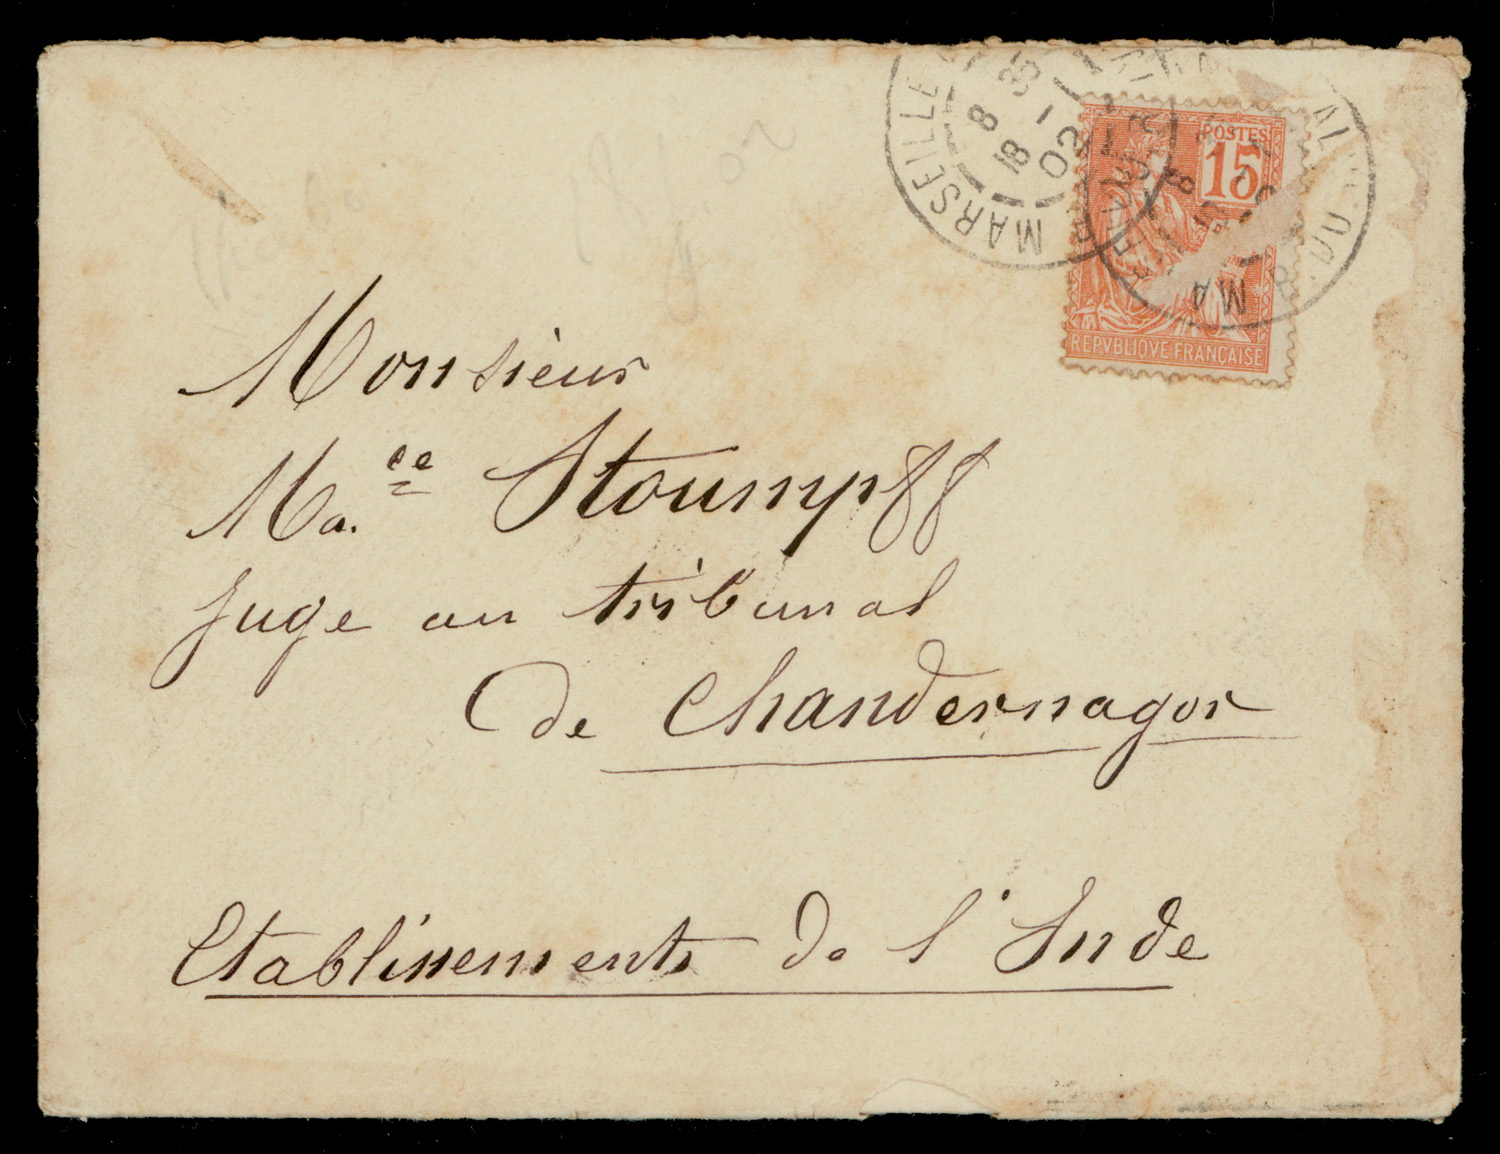 MARSEILLE
8 35
18 -1
02
POSTES
15
REPVBLIQVE FRANÇAISE
Monsieur
Ma.ce Stoumpff
Juge au tribunal
de Chandernagor
Etablissements de l'Inde